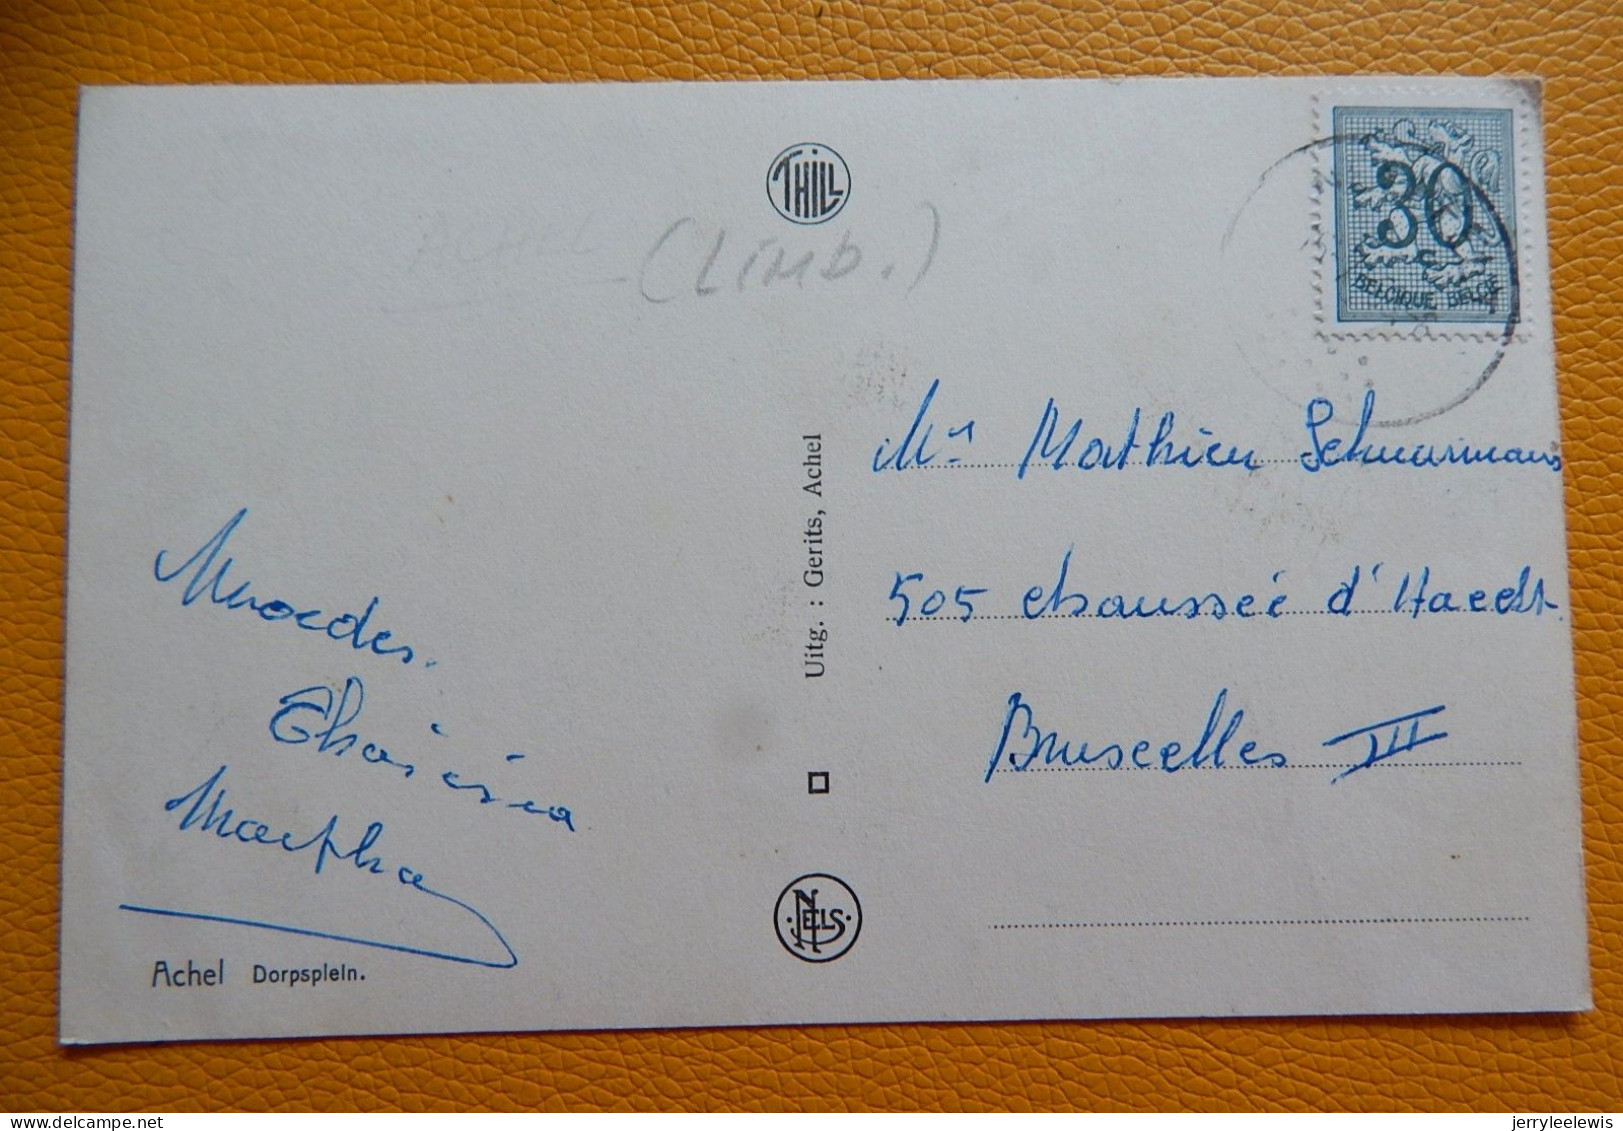 THILL
ACHEL (LIMB.)
30
BELGIQUE BELGIE
Mr Mathieu Schuurmans
505 chaussée d'Haecht.
Bruxelles III
Uitg. : Gerits, Achel
Martha
NELS
Achel Dorpsplein.
jerryleelewis